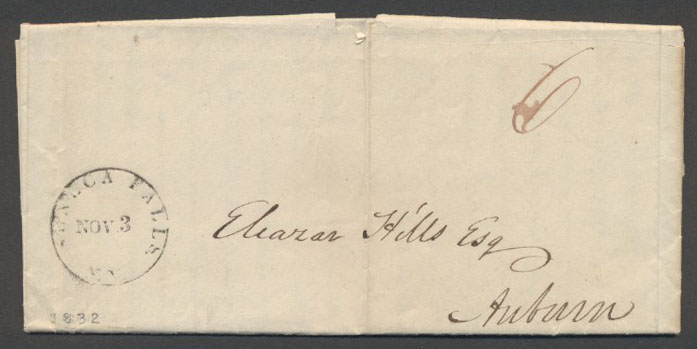 6
SENECA FALLS
NOV. 3
NY
Eleazar Hills Esq
Auburn
1832